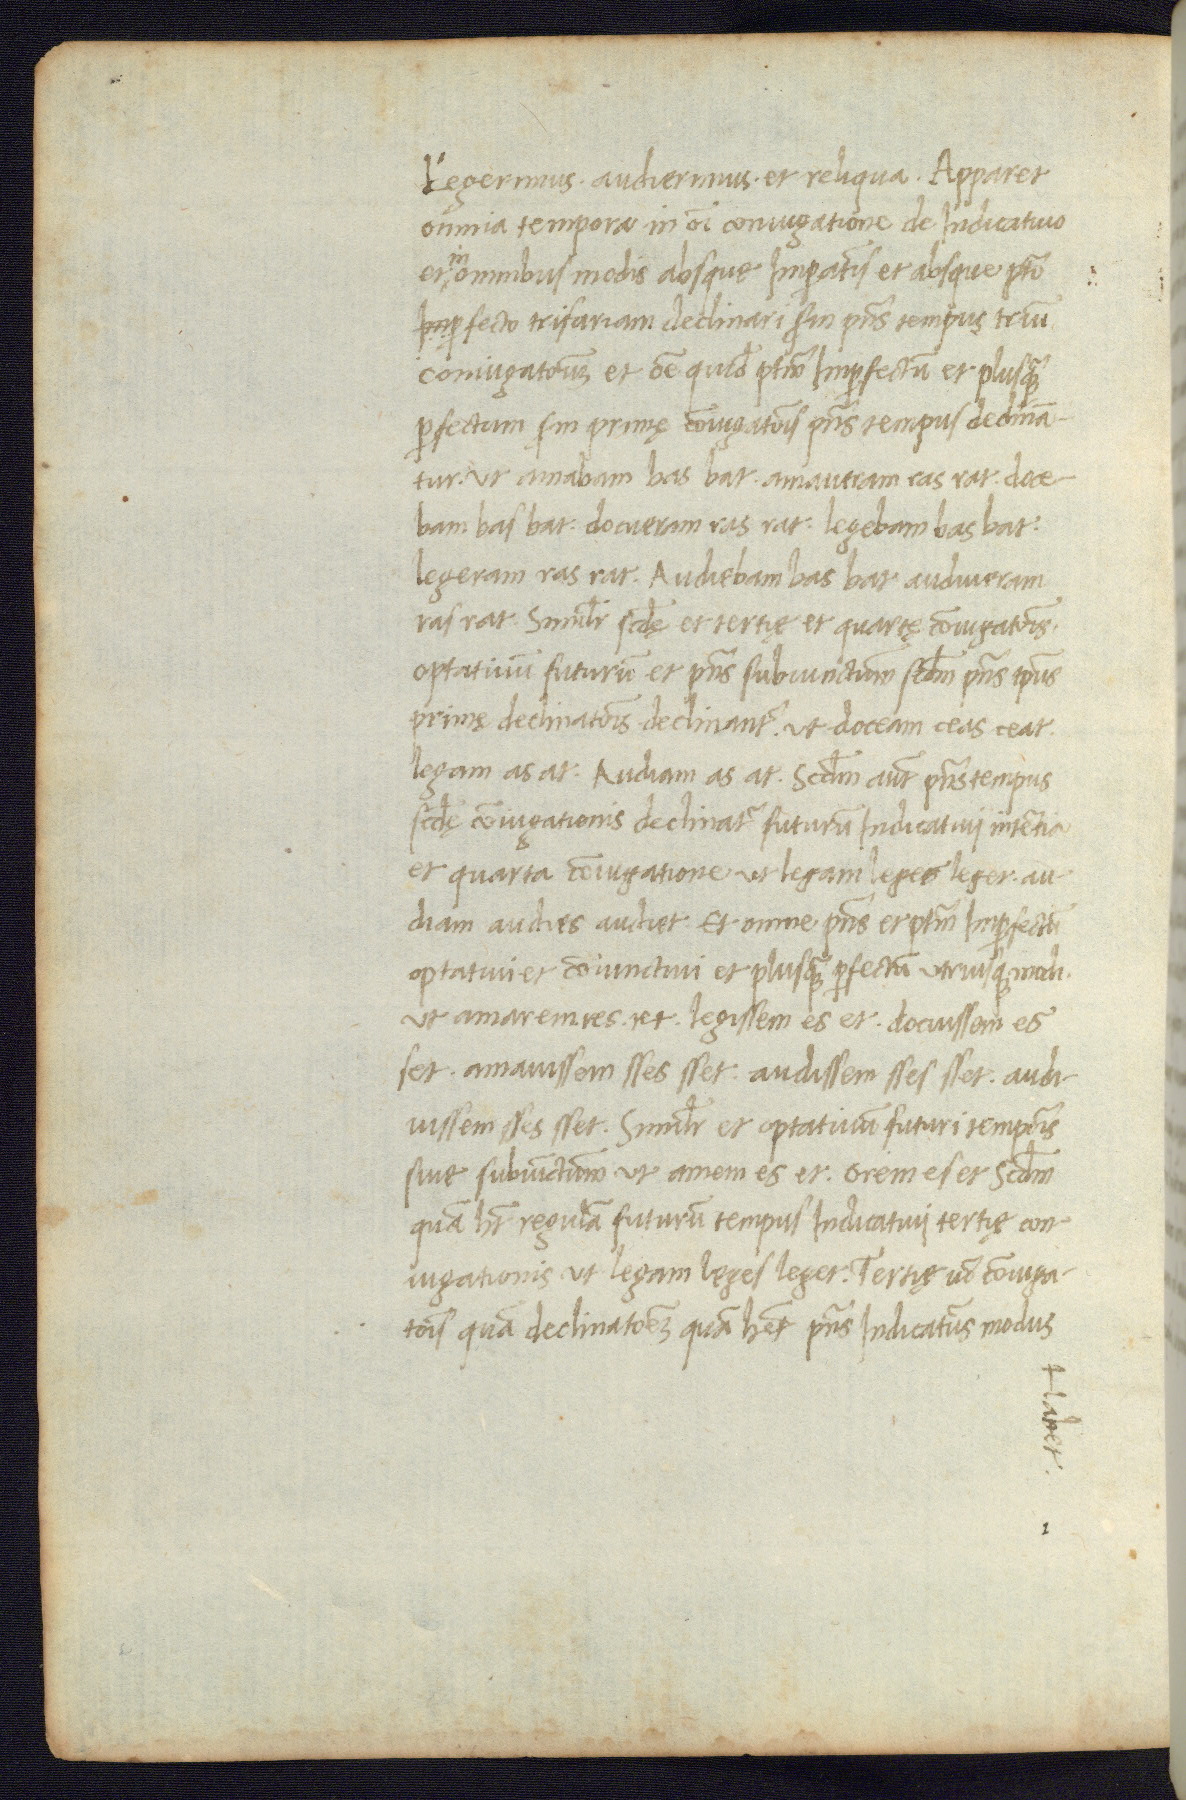 Legerimus. audierimus. et reliqua. Apparet
omnia tempora in oī coniugatione de Indicatiuo
et in omnibus modis absque Imꝑatīs et absque p̄tō
Imꝑfecto trifariam declinari s̄m p̄ns tempus triū
coniugatōnū et ōē quid̄ p̄tm̄ Imꝑfectū et plusꝗ̄
ꝑfectum s̄m primę cōiugatōis p̄ns tempus declinā-
tur. vt amabam bas bat. amaueram ras rat. doce-
bam bas bat: docueram ras rat: legebam bas bat:
legeram ras rat. Audiebam bas bat audiueram
ras rat. Similr̄ scd̄ę et tertię et quartę cōiugatōīs.
optatiuū futurū et p̄ns subiunctiuum scd̄m p̄ns tp̄us
primę declinatōīs declinant᷑. vt doceam ceas ceat.
legam as at. Audiam as at. Scd̄m aūt p̄ns tempus
scd̄ę cōiugationis declinat᷑ futurū Indicatiui in tētia
et quarta cōiugatione vt legam leges leget. au-
diam audies audiet. Et omne p̄ns et p̄tm̄ Imꝑfectū
optatiui et cōiunctiui et plusꝗ̄ ꝑfectū vtriusq; modi.
vt amarem res. ret. legissem es et. docuissem es
set. amauissem sses sset. audissem sses sset. audi-
uissem sses sset. Similr̄ et optatiuū futuri tempōīs
siue subiūctiuum vt amem es et. orem es et Scd̄m
quā h̄t regulā futurū tempus Indicatiui tertię con-
iugationis vt legam leges leget. Tertię uō cōiuga-
tōīs quā declinatōēȝ quā h̄et p̄ns Indicatīus modus
Habet.